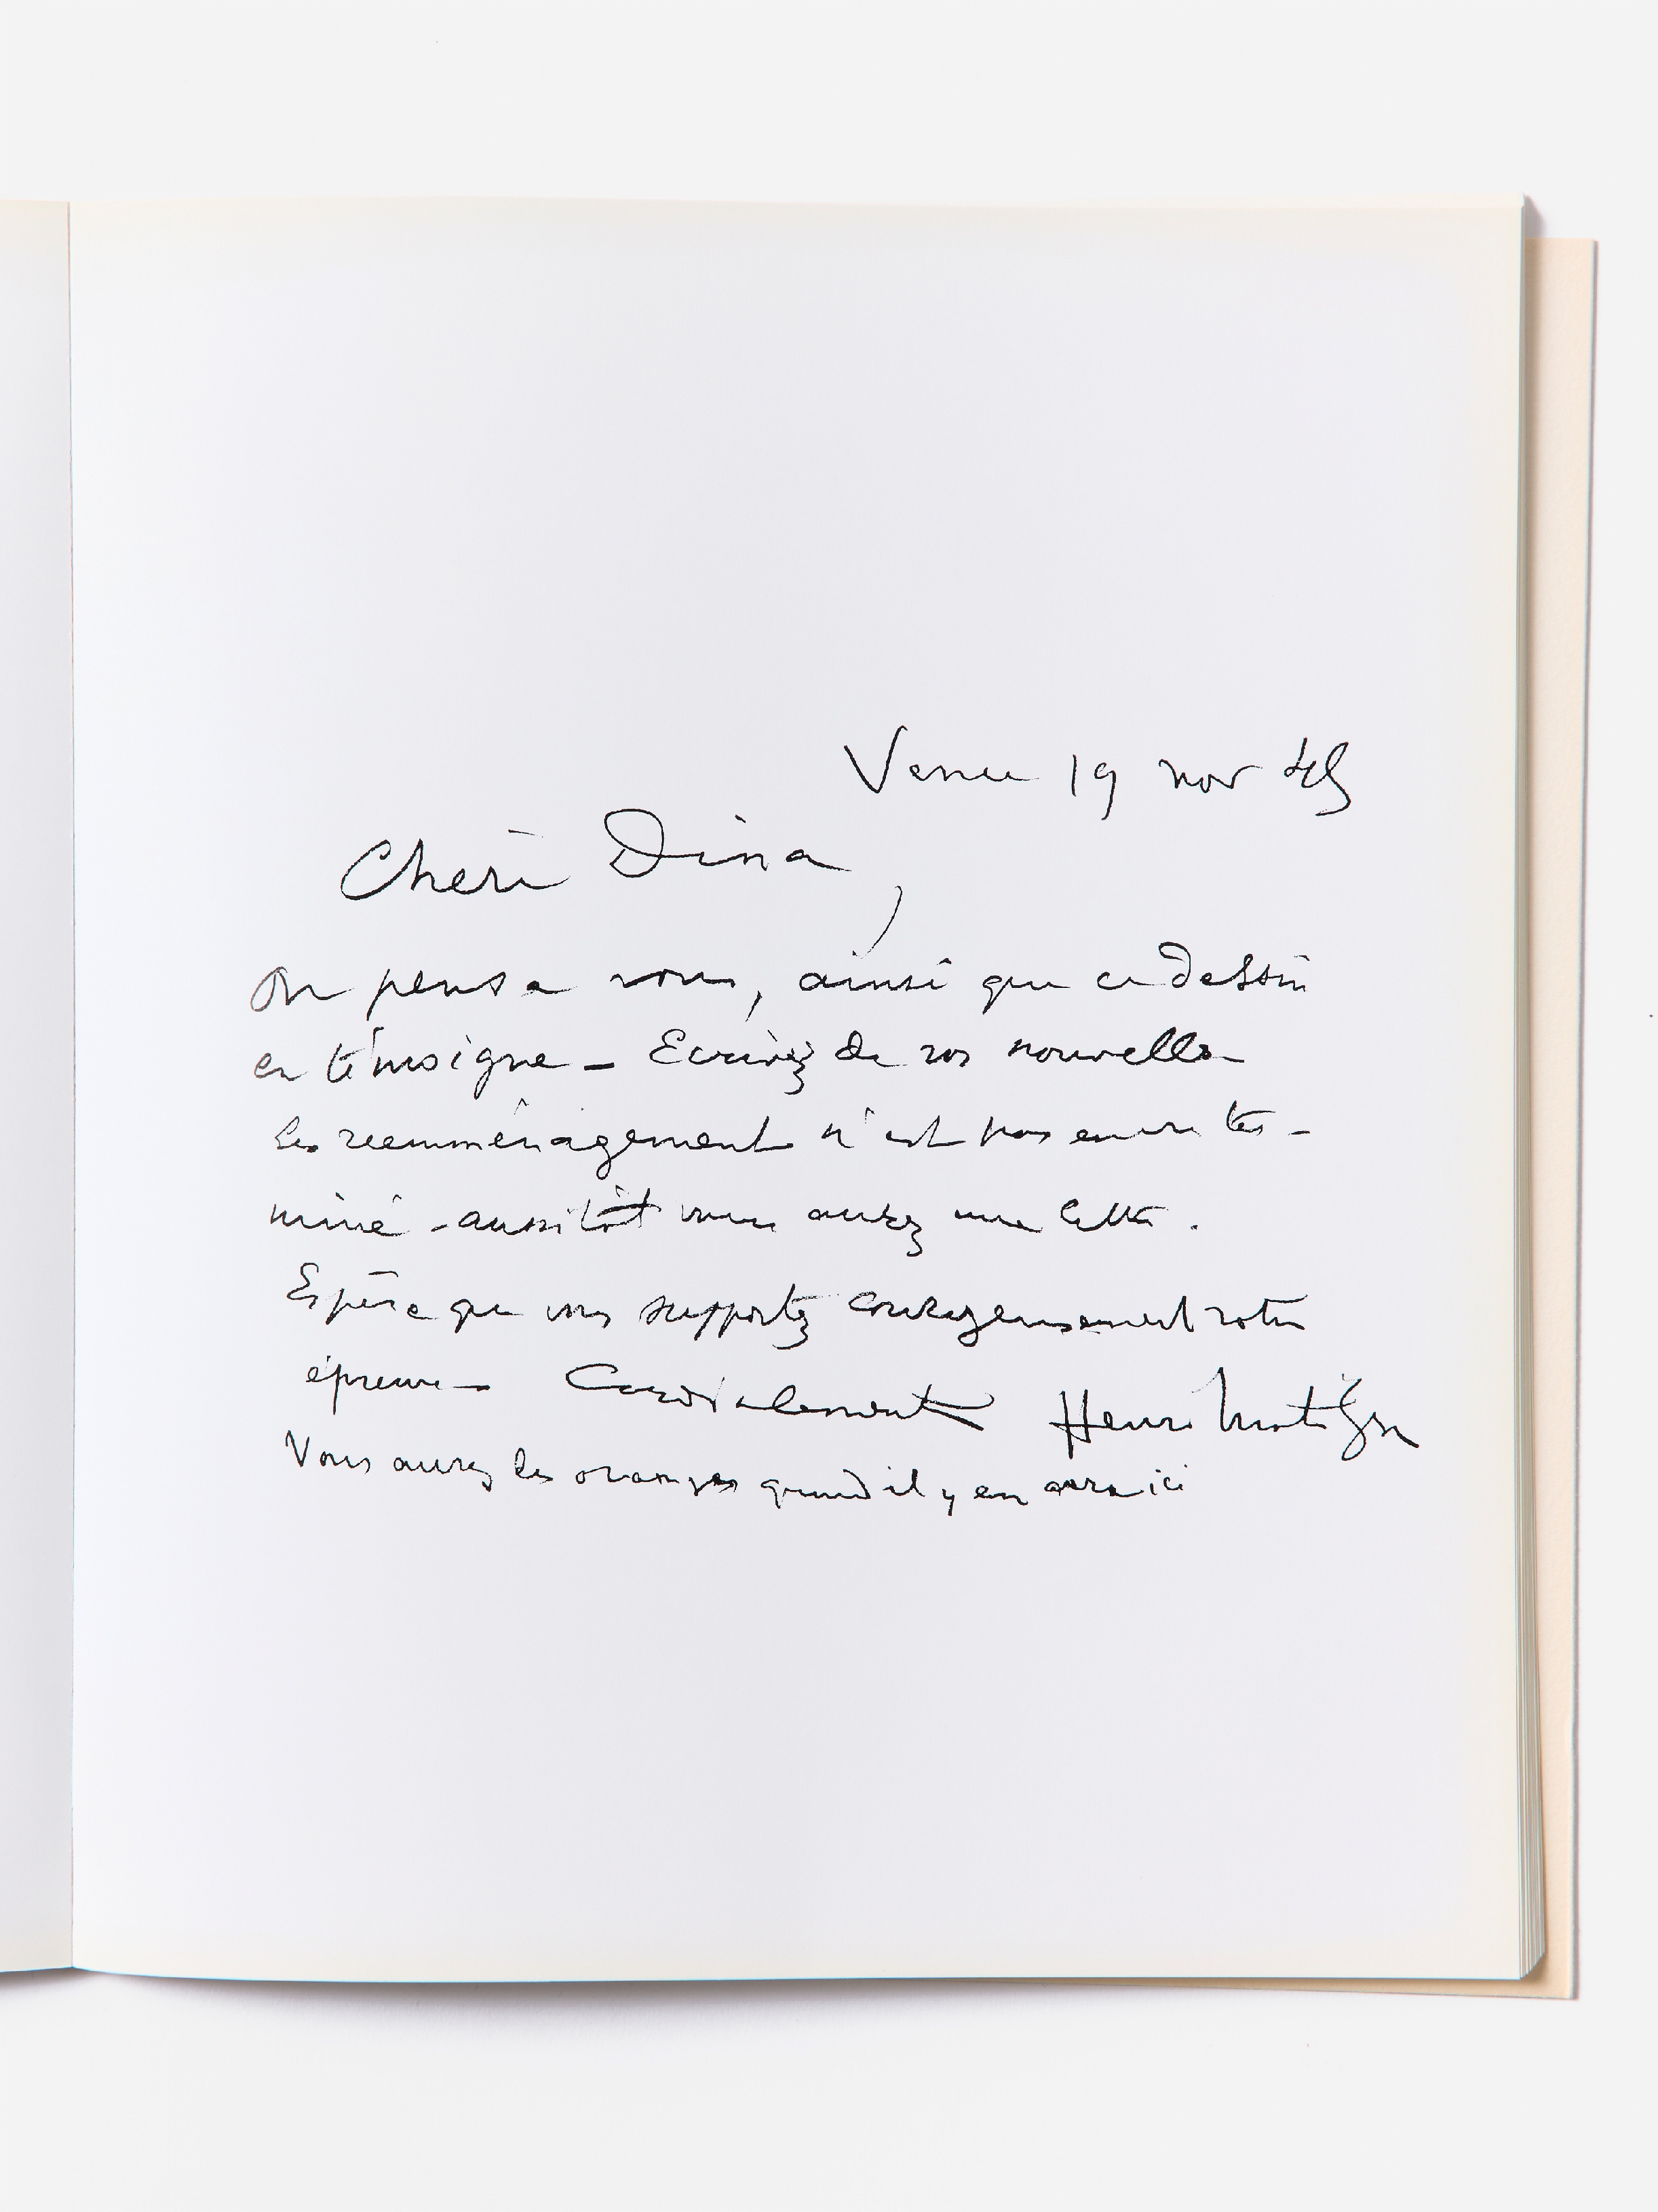 Vence 19 nov 45
Chère Dina,
On pense à vous, ainsi que ce dessin
en témoigne – Ecrivez de vos nouvelles
Le reemménagement n'est pas encore ter-
miné – aussitôt vous aurez une lettre.
Espère que vous supportez courageusement votre
épreuve – Cordialement Henri Matisse
Vous aurez les oranges quand il y en aura ici